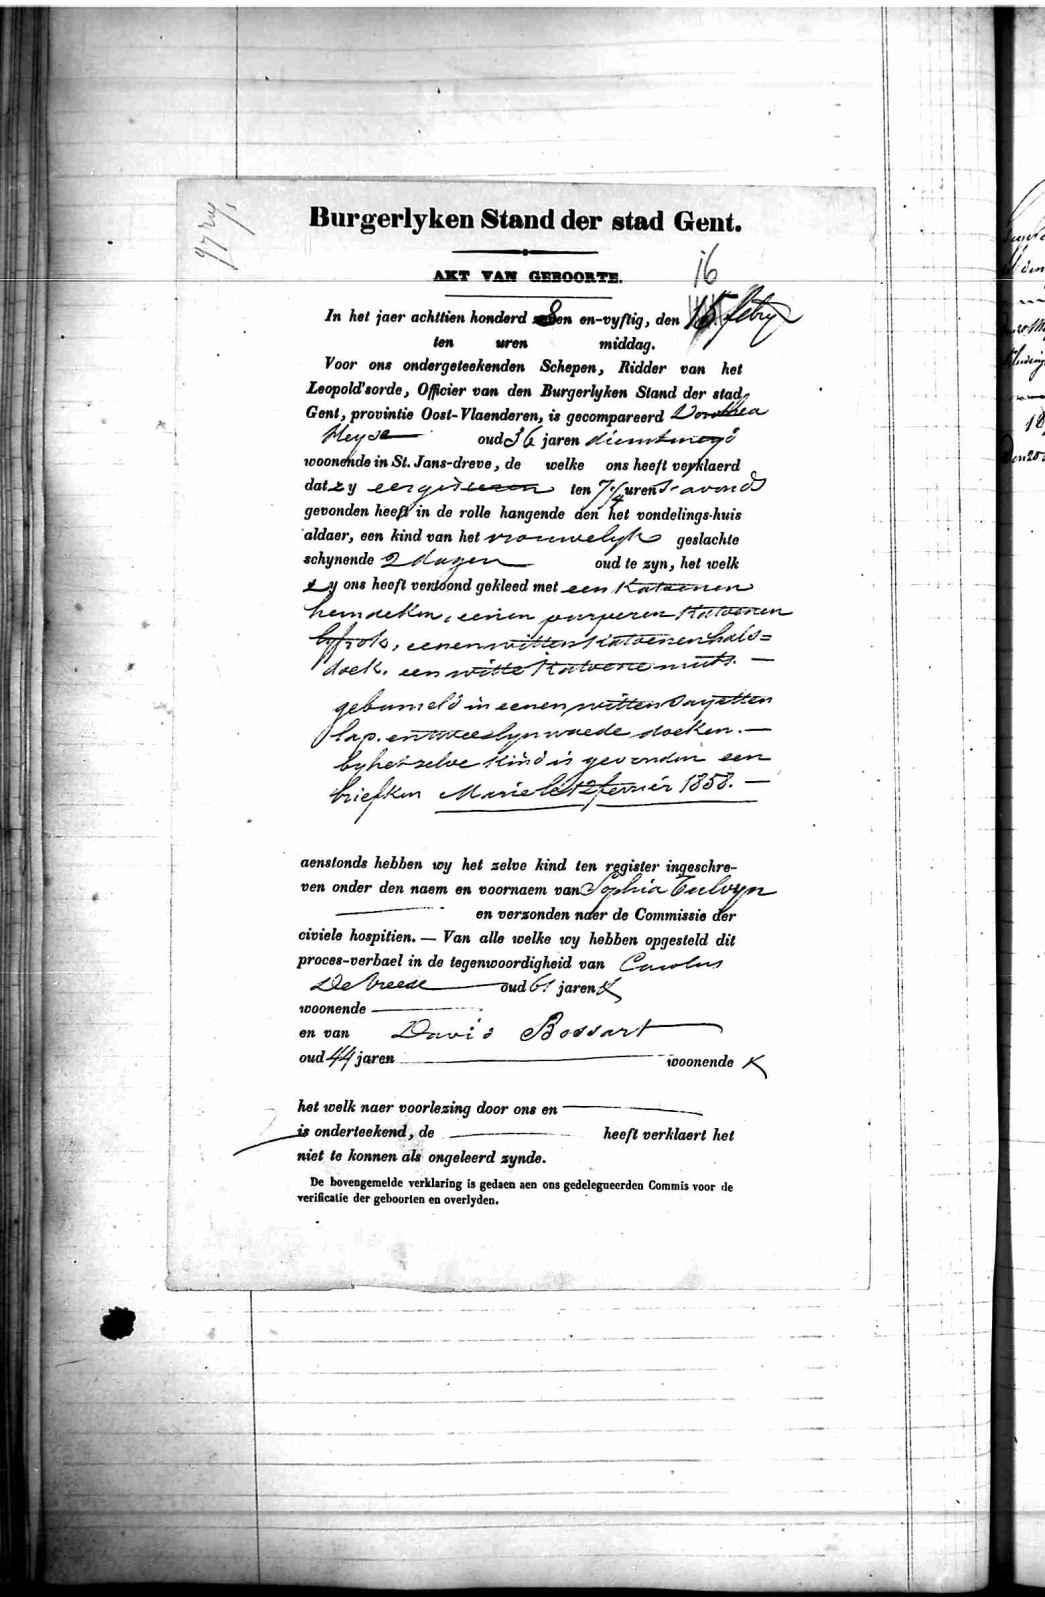 Burgerlyken Stand der stad Gent.
AKT VAN GEBOORTE.
16
In het jaer achttien honderd 8 en en-vyftig, den 15 febry
ten uren middag.
Voor ons ondergeteekenden Schepen, Ridder van het
Leopold'sorde, Officier van den Burgerlyken Stand der stad
Gent, provintie Oost-Vlaenderen, is gecompareerd Dorothea
Heyse oud 36 jaren dienstmeyd
woonende in St. Jans-dreve, de welke ons heeft verklaerd
dat zy eergisteren ten 7 uren s'avonds
gevonden heeft in de rolle hangende aen het vondelings-huis
aldaer, een kind van het vrouwelyk geslachte
schynende 2 dagen oud te zyn, het welk
zy ons heeft vertoond gekleed met een Katoenen
hemdeken, eenen purperen Katoenen
lyfrok, eenen witten Katoenen hals=
doek. een witte Katoene muts. —
gebunseld in eenen witten sayetten
lap. en twee lynwaede doeken. —
by het zelve kind is gevonden een
briefken Marie le 12 fevrier 1858. —
aenstonds hebben wy het zelve kind ten register ingeschre-
ven onder den naem en voornaem van Sophia
en verzonden naer de Commissie der
civiele hospitien. — Van alle welke wy hebben opgesteld dit
proces-verbael in de tegenwoordigheid van Carolus
De Vreese oud 61 jaren
woonende
en van David Bossart
oud 44 jaren woonende
het welk naer voorlezing door ons en
is onderteekend, de heeft verklaert het
niet te konnen als ongeleerd zynde.
De bovengemelde verklaring is gedaen aen ons gedelegueerden Commis voor de
verificatie der geboorten en overlyden.